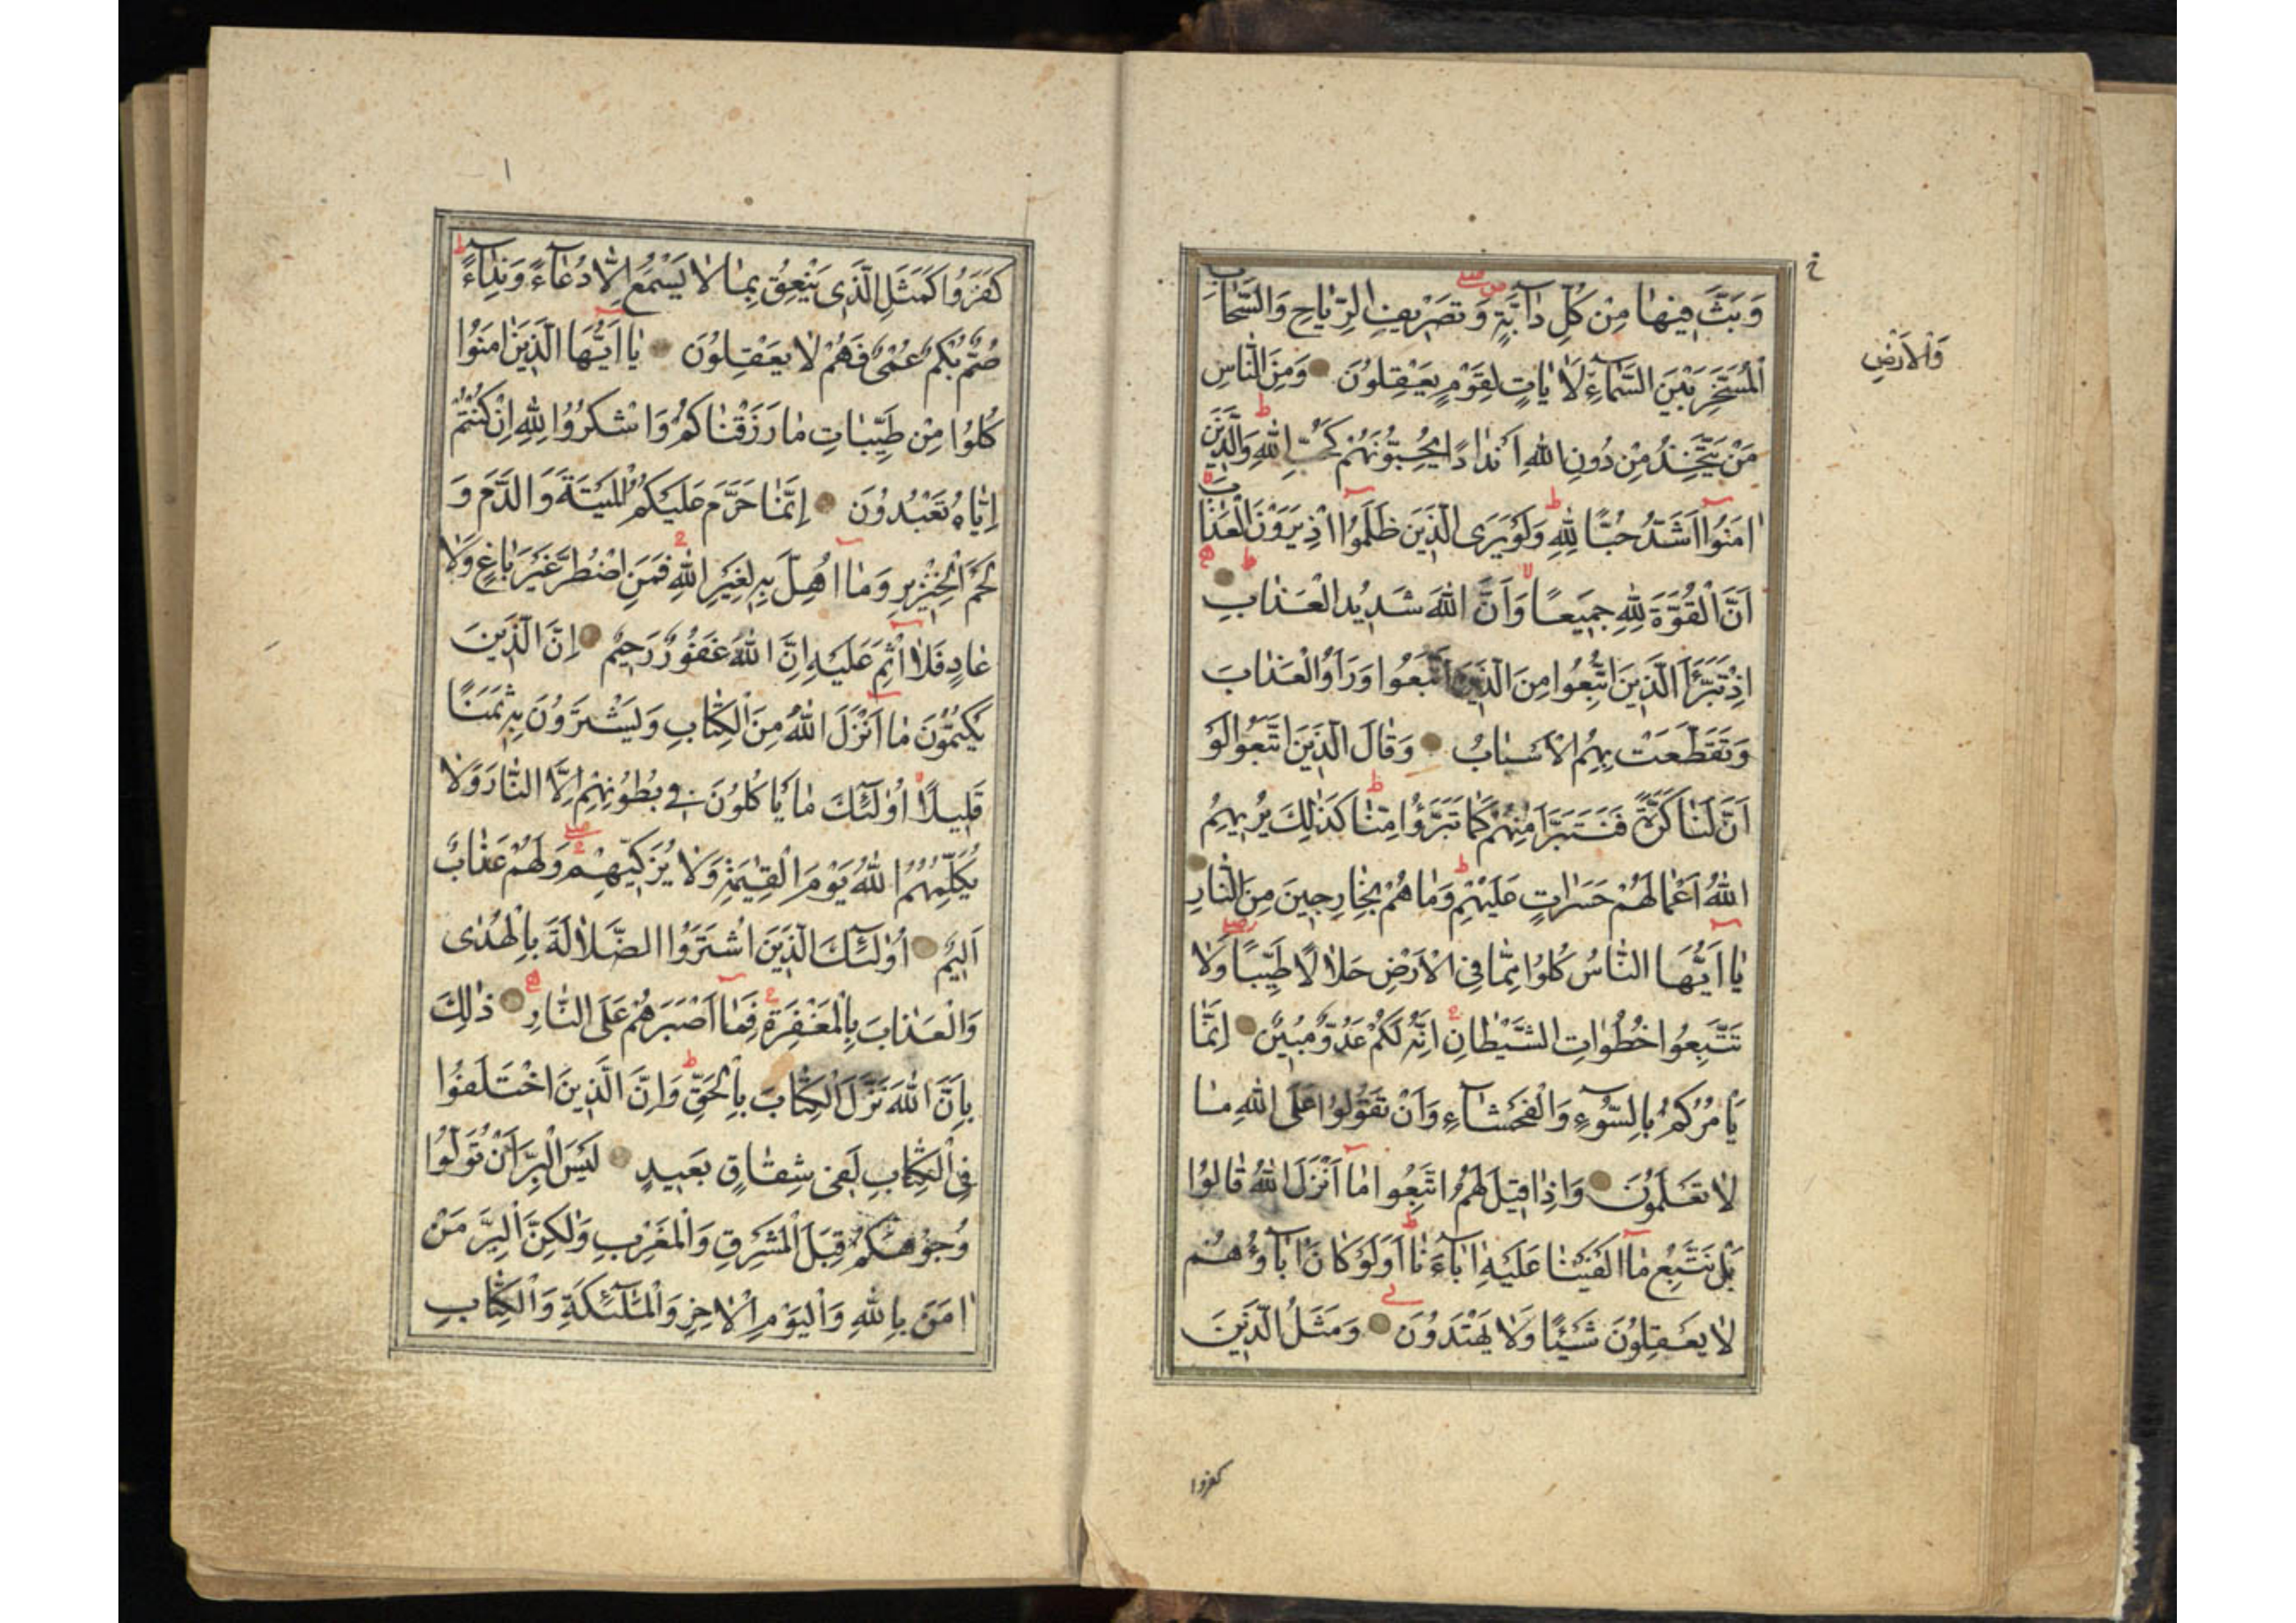 وَبَثَّ فِيهَا مِنْ كُلِّ دَآبَّةٍ وَتَصْرِيفِ الرِّيَاحِ وَالسَّحَابِ
الْمُسَخَّرِ بَيْنَ السَّمَآءِ لَاٰيَاتٍ لِقَوْمٍ يَعْقِلُونَ وَمِنَ النَّاسِ
وَالْاَرْضِ
مَنْ يَتَّخِذُ مِنْ دُونِ اللّٰهِ اَنْدَادًا يُحِبُّونَهُمْ كَحُبِّ اللّٰهِ وَالَّذِينَ
اٰمَنُوا اَشَدُّ حُبًّا لِلّٰهِ وَلَوْ يَرَى الَّذِينَ ظَلَمُوا اِذْ يَرَوْنَ الْعَذَابَ
اَنَّ الْقُوَّةَ لِلّٰهِ جَمِيعًا وَاَنَّ اللّٰهَ شَدِيدُ الْعَذَابِ
اِذْ تَبَرَّاَ الَّذِينَ اتُّبِعُوا مِنَ الَّذِينَ اتَّبَعُوا وَرَاَوُا الْعَذَابَ
وَتَقَطَّعَتْ بِهِمُ الْاَسْبَابُ وَقَالَ الَّذِينَ اتَّبَعُوا لَوْ
اَنَّ لَنَا كَرَّةً فَنَتَبَرَّاَ مِنْهُمْ كَمَا تَبَرَّؤُا مِنَّا كَذٰلِكَ يُرِيهِمُ
اللّٰهُ اَعْمَالَهُمْ حَسَرَاتٍ عَلَيْهِمْ وَمَا هُمْ بِخَارِجِينَ مِنَ النَّارِ
يَا اَيُّهَا النَّاسُ كُلُوا مِمَّا فِي الْاَرْضِ حَلَالًا طَيِّبًا وَلَا
تَتَّبِعُوا خُطُوَاتِ الشَّيْطَانِ اِنَّهُ لَكُمْ عَدُوٌّ مُبِينٌ اِنَّمَا
يَاْمُرُكُمْ بِالسُّوٓءِ وَالْفَحْشَآءِ وَاَنْ تَقُولُوا عَلَى اللّٰهِ مَا
لَا تَعْلَمُونَ وَاِذَا قِيلَ لَهُمُ اتَّبِعُوا مَا اَنْزَلَ اللّٰهُ قَالُوا
بَلْ نَتَّبِعُ مَا اَلْفَيْنَا عَلَيْهِ اٰبَآءَنَا اَوَلَوْ كَانَ اٰبَآؤُهُمْ
لَا يَعْقِلُونَ شَيْئًا وَلَا يَهْتَدُونَ وَمَثَلُ الَّذِينَ
كفروا
كَفَرُوا كَمَثَلِ الَّذِى يَنْعِقُ بِمَا لَا يَسْمَعُ اِلَّا دُعَآءً وَنِدَآءً
صُمٌّ بُكْمٌ عُمْىٌ فَهُمْ لَا يَعْقِلُونَ يَا اَيُّهَا الَّذِينَ اٰمَنُوا
كُلُوا مِنْ طَيِّبَاتِ مَا رَزَقْنَاكُمْ وَاشْكُرُوا لِلّٰهِ اِنْ كُنْتُمْ
اِيَّاهُ تَعْبُدُونَ اِنَّمَا حَرَّمَ عَلَيْكُمُ الْمَيْتَةَ وَالدَّمَ وَ
لَحْمَ الْخِنْزِيرِ وَمَا اُهِلَّ بِهِ لِغَيْرِ اللّٰهِ فَمَنِ اضْطُرَّ غَيْرَ بَاغٍ وَلَا
عَادٍ فَلَا اِثْمَ عَلَيْهِ اِنَّ اللّٰهَ غَفُورٌ رَحِيمٌ اِنَّ الَّذِينَ
يَكْتُمُونَ مَا اَنْزَلَ اللّٰهُ مِنَ الْكِتَابِ وَيَشْتَرُونَ بِهِ ثَمَنًا
قَلِيلًا اُولٰٓئِكَ مَا يَاْكُلُونَ فِي بُطُونِهِمْ اِلَّا النَّارَ وَلَا
يُكَلِّمُهُمُ اللّٰهُ يَوْمَ الْقِيٰمَةِ وَلَا يُزَكِّيهِمْ وَلَهُمْ عَذَابٌ
اَلِيمٌ اُولٰٓئِكَ الَّذِينَ اشْتَرَوُا الضَّلَالَةَ بِالْهُدٰى
وَالْعَذَابَ بِالْمَغْفِرَةِ فَمَا اَصْبَرَهُمْ عَلَى النَّارِ ذٰلِكَ
بِاَنَّ اللّٰهَ نَزَّلَ الْكِتَابَ بِالْحَقِّ وَاِنَّ الَّذِينَ اخْتَلَفُوا
فِي الْكِتَابِ لَفِي شِقَاقٍ بَعِيدٍ لَيْسَ الْبِرَّ اَنْ تُوَلُّوا
وُجُوهَكُمْ قِبَلَ الْمَشْرِقِ وَالْمَغْرِبِ وَلٰكِنَّ الْبِرَّ مَنْ
اٰمَنَ بِاللّٰهِ وَالْيَوْمِ الْاٰخِرِ وَالْمَلٰٓئِكَةِ وَالْكِتَابِ